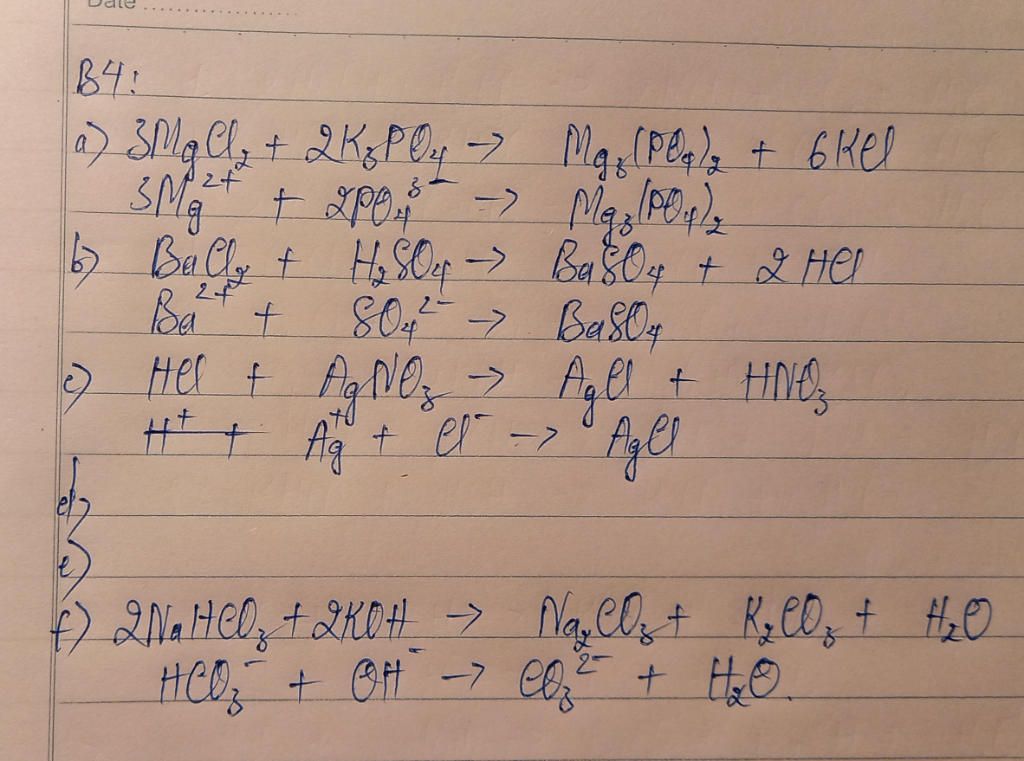 Date ....................
B4:
a) 3MgCl₂ + 2K₃PO₄ → Mg₃(PO₄)₂ + 6KCl
3Mg²⁺ + 2PO₄³⁻ → Mg₃(PO₄)₂
b) BaCl₂ + H₂SO₄ → BaSO₄ + 2HCl
Ba²⁺ + SO₄²⁻ → BaSO₄
c) HCl + AgNO₃ → AgCl + HNO₃
H⁺ + Ag⁺ + Cl⁻ → AgCl
d)
e)
f) 2NaHCO₃ + 2KOH → Na₂CO₃ + K₂CO₃ + H₂O
HCO₃⁻ + OH⁻ → CO₃²⁻ + H₂O.